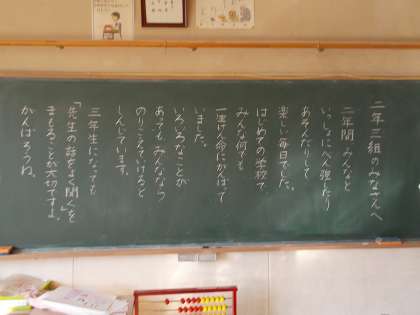 二年三組のみなさんへ
二年間、みんなと
いっしょにべん強したり
あそんだりして
楽しい毎日でした。
はじめての学校で
みんな何でも
一生けん命にがんばって
いました。
いろいろなことが
あっても、みんななら
のりこえていけると
しんじています。
三年生になっても
「先生の話をよく聞く」を
まもることが大切ですよ。
がんばろうね。